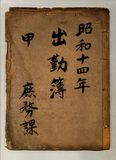 昭和十四年
出勤簿
甲
庶務課